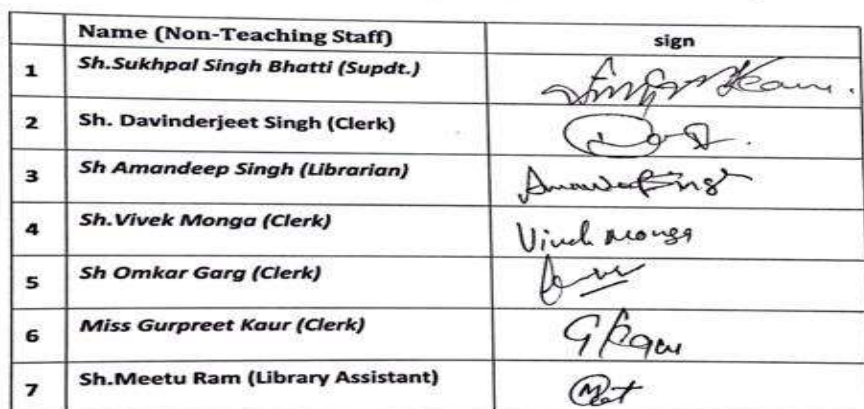 Name (Non-Teaching Staff) sign
1 Sh.Sukhpal Singh Bhatti (Supdt.)
2 Sh. Davinderjeet Singh (Clerk)
3 Sh Amandeep Singh (Librarian)
4 Sh.Vivek Monga (Clerk) Vivek Monga
5 Sh Omkar Garg (Clerk)
6 Miss Gurpreet Kaur (Clerk) G Kaur
7 Sh.Meetu Ram (Library Assistant)